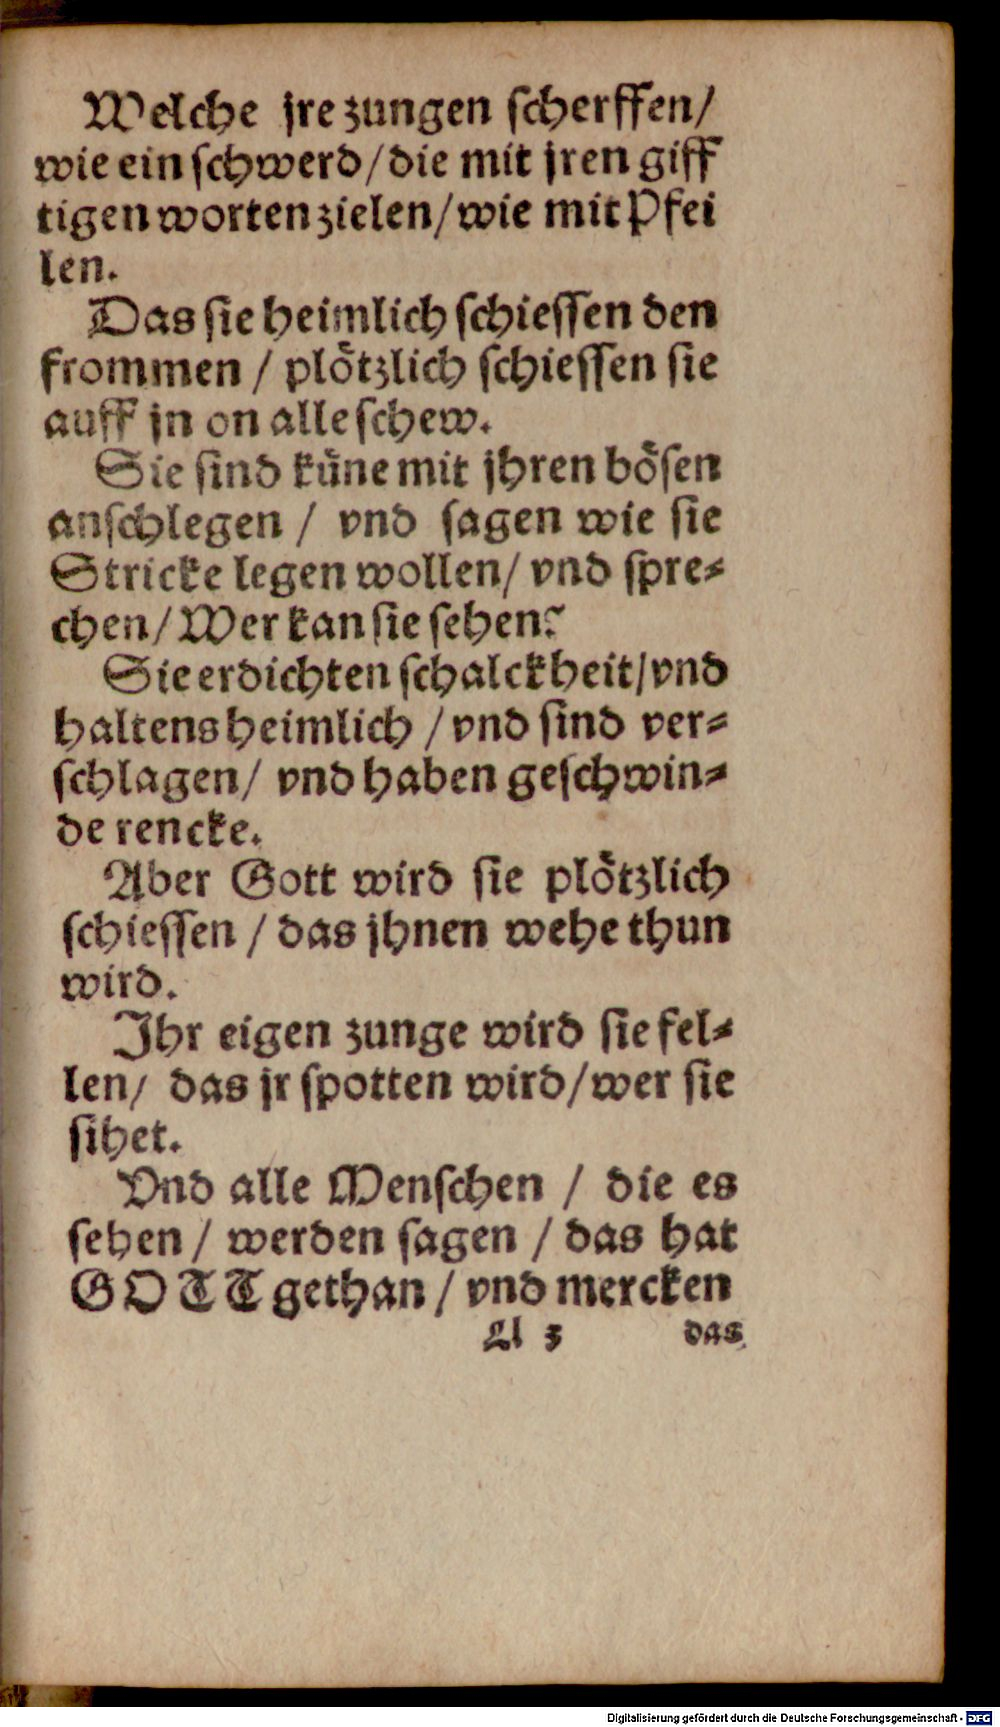 Welche jre zungen scherffen/
wie ein schwerd/die mit jren giff
tigen worten zielen/wie mit Pfei
len.
Das sie heimlich schiessen den
frommen / plötzlich schiessen sie
auff jn on alle schew.
Sie sind küne mit jhren bösen
anschlegen / vnd sagen wie sie
Stricke legen wollen/ vnd spre⸗
chen/ Wer kan sie sehen?
Sie erdichten schalckheit/vnd
haltens heimlich / vnd sind ver⸗
schlagen/ vnd haben geschwin⸗
de rencke.
Aber Gott wird sie plötzlich
schiessen / das jhnen wehe thun
wird.
Ihr eigen zunge wird sie fel⸗
len/ das jr spotten wird/wer sie
sihet.
Vnd alle Menschen / die es
sehen / werden sagen / das hat
GOTT gethan / vnd mercken
A 3 das
Digitalisierung gefördert durch die Deutsche Forschungsgemeinschaft - DFG